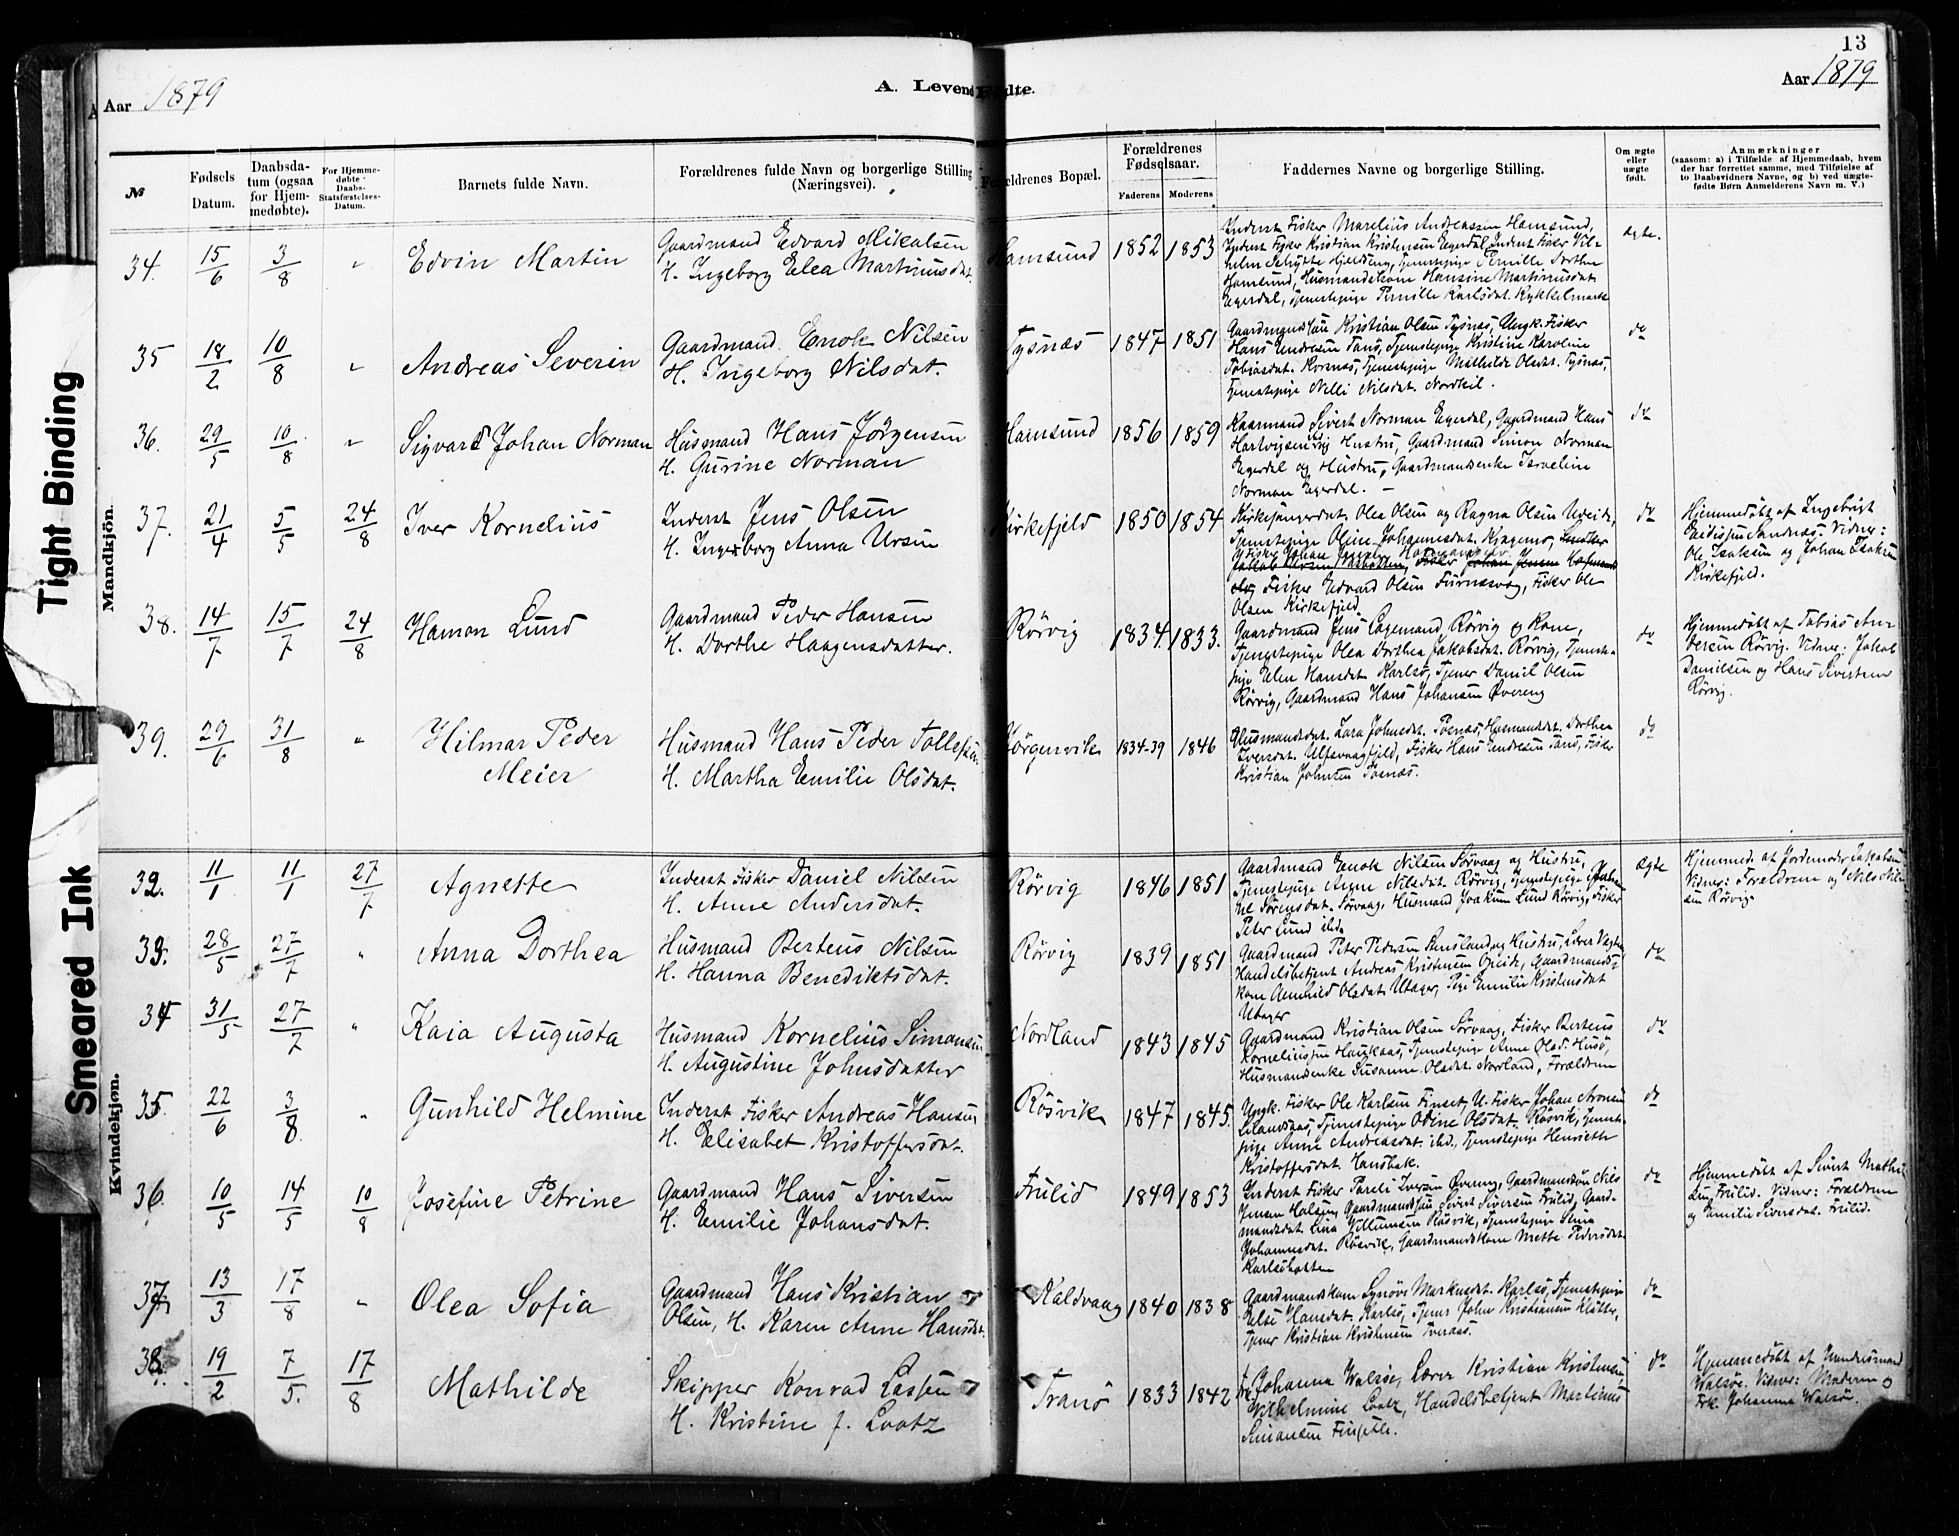 13
Aar 1879
A. Levendefødte.
Aar 1879
№
Fødsels Datum.
Daabsdatum (ogsaa for Hjemmedøbte).
For Hjemmedøbte Daabs-Statsfæstelses-Datum.
Barnets fulde Navn.
Forældrenes fulde Navn og borgerlige Stilling (Næringsvei).
Forældrenes Bopæl.
Forældrenes Fødselsaar.
Faderens
Moderens
Faddernes Navne og borgerlige Stilling.
Om ægte eller uægte født.
Anmærkninger
(saasom: a) i Tilfælde af Hjemmedaab, hvem der har forrettet samme, med Tilføielse af to Daabsvidners Navne, og b) ved uægtefødte Børn Anmelderens Navn m. V.)
Tight Binding
Smeared Ink
Mandkjøn.
34. 15/6 3/8 " Edvin Martin
Gaardmand Edvard Mikalsen
H. Ingeborg Elea Martinusdat.
Hamsund 1852 1853
Inderst Fisker Marelius Andreassen Hamsund,
Inderst Fisker Kristian Kristensen Egerdal, Inderst Fisker Vil-
helm Schytte Hjeldeng, Tjenestepige Pernille Dorthea
Hamsund, Husmandskone Hansine Martinusdat.
Egerdal, Tjenestepige Pernille Karlsdat.
ægte.
35 18/2 10/8 " Andreas Severin
Gaardmand Enok Nilsen
H. Ingeborg Nilsdat.
Tysnæs 1847 1851
Gaardmandssøn Kristian Olsen Tysnæs, Ungk. Fisker
Hans Endresen Tanø, Tjenestepige Kristine Karoline
Tobiasdat. Korsnæs, Tjenestepige Mathilde Olsdat. Tysnæs,
Tjenestepige Nelli Nilsdat. Nordkil.
do
36. 29/5 10/8 " Sigvard Johan Norman
Husmand Hans Jörgensen
H. Gurine Norman
Hamsund 1856 1859
Kaarmand Sivert Norman Egerdal, Gaardmand Hans
Hartvigsen og Hustru, Gaardmand Simon Norman
Egerdal og Hustru, Gaardmandsenke Israeline
Norman Egerdal. –
do
37. 21/4 5/5 24/8 Iver Kornelius
Inderst Jens Olsen
H. Ingeborg Anna Ursin
Kirkefjeld 1850 1854
Kirkesangerdat. Olea Olsen og Ragna Olsen Udeide,
Tjenestepige Oline Johannesdat.
Fisker Edvard Olsen Furnæsvåg, Fisker Ole
Olsen Kirkefjeld
do
Hjemmedøbt af Ingebrigt
Sandnæs. Vidner:
Ole Isaksen og Johan Isaksen
Kirkefjeld.
38. 14/7 15/7 24/8 Hamon Lund
Gaardmand Peder Hansen
H. Dorthe Haagensdatter.
Rörvig 1834. 1833.
Gaardmand Jens Lagemand, Rörvig og Kone,
Tjenestepige Olea Dorthea Jakobsdat. Rörvig, Tjeneste-
pige Elen Hansdat. Karlsö, Tjener Daniel Olsen
Rörvig, Gaardmand Hans Johansen Övereng
do
Hjemmedøbt af Tobias An-
dersen Rörvig. Vidner: Jakob
Danielsen og Hans Sivertsen
Rörvig.
39. 29/6 31/8 " Hilmar Peder
Meier
Husmand Hans Peder Tollefsen
H. Martha Emilie Olsdat.
Jörgenvik 1834-39 1846
Husmandsdat. Lara Johnsdat. Poenæs, Husmandsdat. Dorthea
Iversdat. Ulfsvaagfjeld, Fisker Hans Endresen Tanø, Fisker
Kristian Johnsen Poenæs.
do
Kvindekjøn.
32. 11/1 11/1 27/7 Agnette
Inderst Fisker Daniel Nilsen
H. Anne Andersdat.
Rörvig 1846 1851
Gaardmand Enok Nilsen Sörvaag og Hustru,
Tjenestepige Anne Nilsdat. Rörvig, Tjenestepige
Sörensdat. Sörvaag, Husmand Joakim Lund Rörvig, Fisker
Peter Lund ibid.
ægte
Hjemmed. af Jordemoder Jakobsen
Vidner: Forældrene og Nils Nil-
sen Rörvig
33. 28/5 27/7 " Anna Dorthea
Husmand Berteus Nilsen
H. Hanna Benediktsdat.
Rörvig 1839 1851
Gaardmand Peter Pedersen og Hustru,
Handelsbetjent Andreas Kristensen Opeide, Gaardmands-
kone Olsdat. Utager, Pige Emilie Kristensdat
Utager
do
34 31/5 27/7 " Kaia Augusta
Husmand Kornelius Simonsen
H. Augustine Johnsdatter
Nordland 1843 1845
Gaardmand Kristian Olsen Sörvaag, Fisker Berteus
Korneliussen Haukaas, Tjenestepige Anne Olsd. Husö,
Husmandsenke Susanne Olsdat. Nordland, Forældrene
do
35. 22/6 3/8 " Gunhild Helmine
Inderst Fisker Andreas Hansen
H. Elisabet Kristoffersdat.
Rösvik 1847 1845.
Ungk. Fisker Ole Karlsen Finset, U. Fisker Johan Aronsen
Tjenestepige Odine Olsdat. Rösvik, Tjeneste-
pige Anne Andreasdat. ibid., Tjenestepige Henriette
Kristoffersdat. Hansbak.
do
36. 10/5 14/5 10/8 Josefine Petrine
Gaardmand Hans Siversen
H. Emilie Johansdat.
Frulid 1849 1853
Inderst Fisker Pareli Iversen Övereng, Gaardmandssön Nils
Jensen Halsen, Gaardmandssön Sivert Siversen Frulid, Gaard-
mandsdat. Lina Villumsen Rösvik, Tjenestepige Stina
Johannesdat. Rösvik, Gaardmandskone Mette Pedersdat.
Karlsöbotten
do
Hjemmedøbt af Sivert Mathi-
Frulid. Vidner: Forældrene
og Emilie Siversdat. Frulid.
37. 13/3 17/8 " Olea Sofia
Gaardmand Hans Kristian
Olsen, H. Karen Anne Hansdat.
Kaldvaag 1840 1838
Gaardmandskone Synöve Markusdat. Karlsö, Tjenestepige
Else Hansdat. Karlsö, Tjener John Kristiansen
Tjener Kristian Kristensen Tveraas.
do
38. 19/2 7/5. 17/8 Mathilde
Skipper Konrad Lassen
H. Kristine f. Lootz
Tranö 1833 1842
Johanna Walsöe, Lærer Kristian Kristensen,
Wilhelmine Lootz, Handelsbetjent Martinus
Simonsen
do
Hjemmedøbt af
Walsöe. Vidner: Moderen og
Frk. Johanna Walsöe.